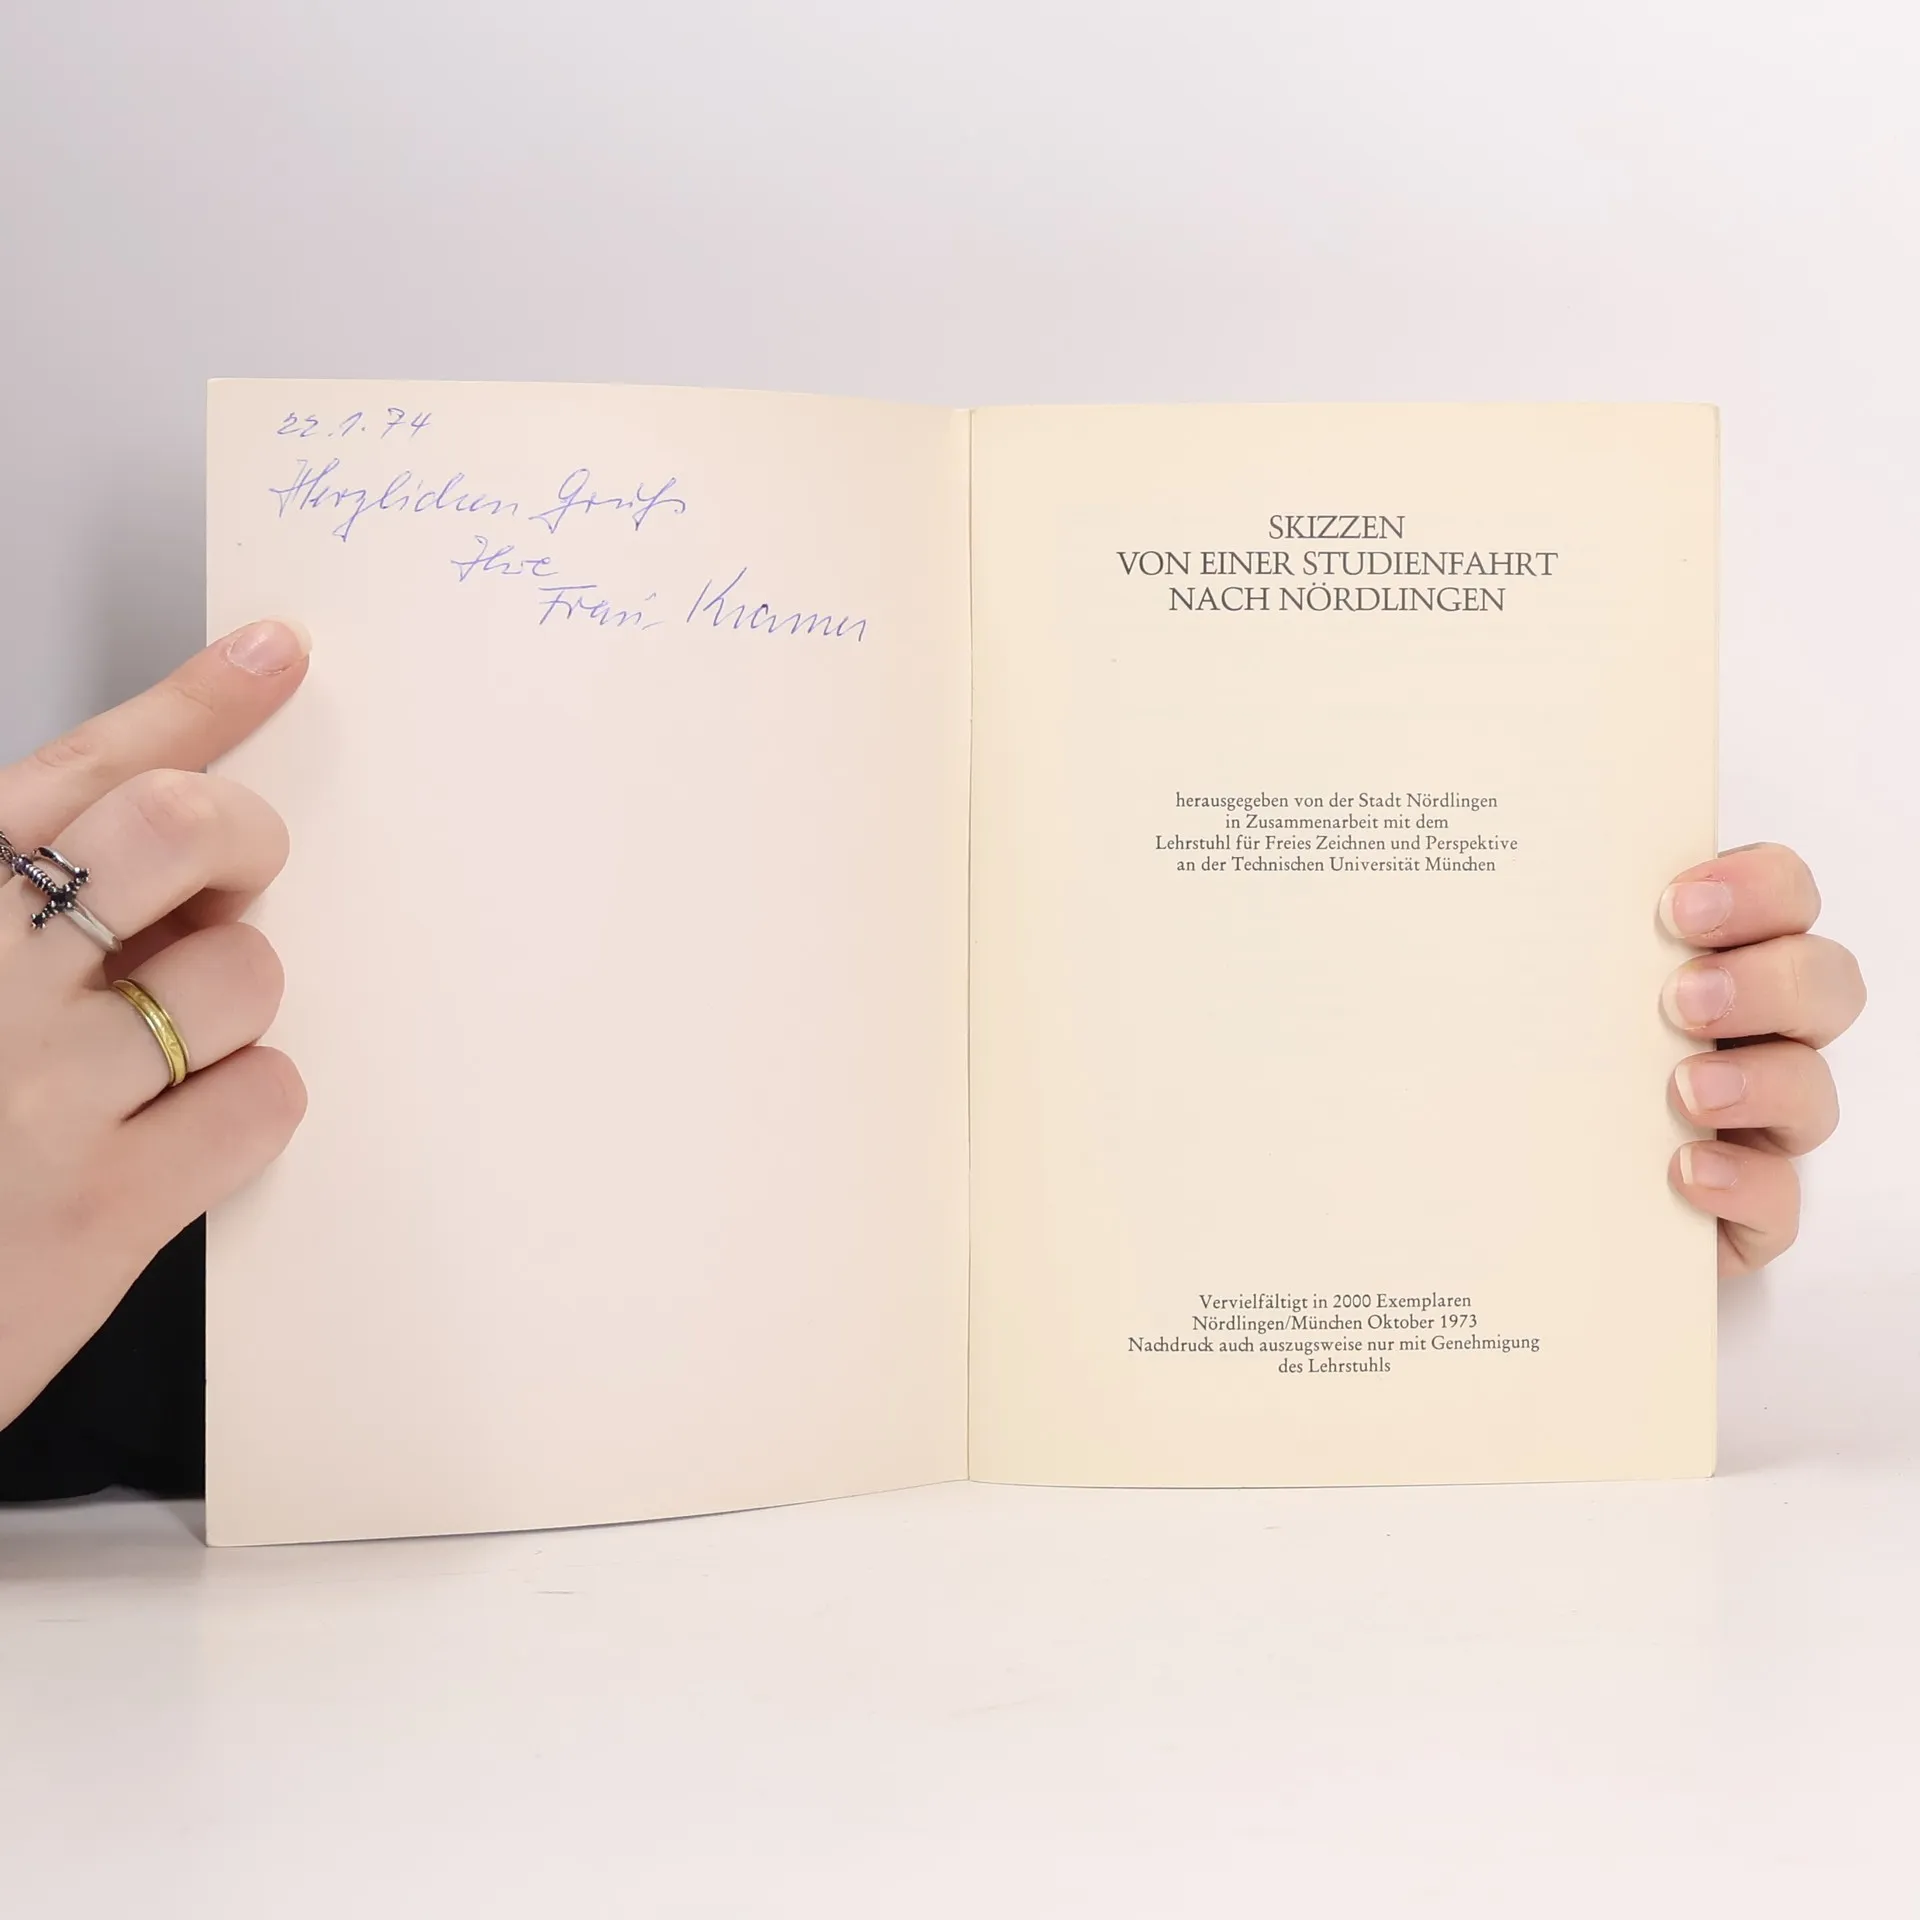 22.1.74
Herzlichen Gruß
Ihre
Frau Kramer
SKIZZEN
VON EINER STUDIENFAHRT
NACH NÖRDLINGEN
herausgegeben von der Stadt Nördlingen
in Zusammenarbeit mit dem
Lehrstuhl für Freies Zeichnen und Perspektive
an der Technischen Universität München
Vervielfältigt in 2000 Exemplaren
Nördlingen/München Oktober 1973
Nachdruck auch auszugsweise nur mit Genehmigung
des Lehrstuhls